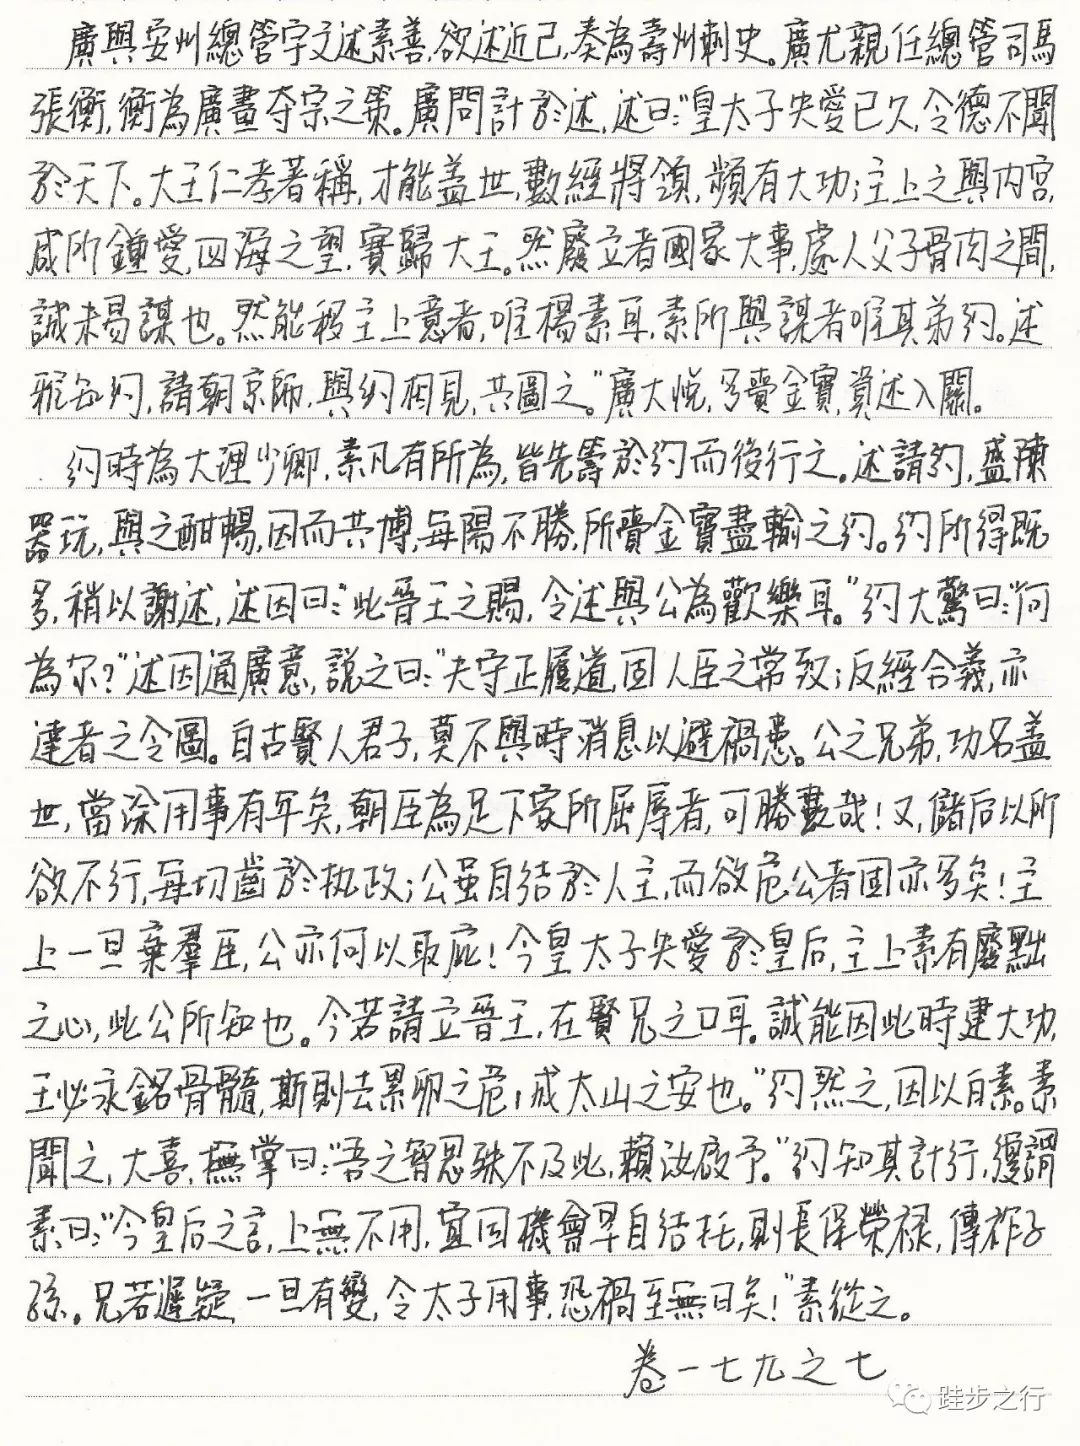 廣與安州總管宇文述素善,欲述近己,奏為壽州刺史。廣尤親任總管司馬
張衡,衡為廣畫奪宗之策。廣問計於述,述曰:“皇太子失愛已久,令德不聞
於天下。大王仁孝著稱,才能蓋世,數經將領,頻有大功;主上之與內宮,
咸所鍾愛,四海之望,實歸大王。然廢立者國家大事,處人父子骨肉之間,
誠未易謀也。然能移主上意者,唯楊素耳,素所與謀者唯其弟約。述
雅知約,請朝京師,與約相見,共圖之。”廣大悅,多賫金寶,資述入關。
約時為大理少卿,素凡有所為,皆先籌於約而後行之。述請約,盛陳
器玩,與之酣暢,因而共博,每陽不勝,所賫金寶盡輸之約。約所得既
多,稍以謝述,述因曰:“此晉王之賜,令述與公為歡樂耳。”約大驚曰:“何
為尔?”述因通廣意,說之曰:“夫守正履道,固人臣之常致;反經合義,亦
達者之令圖。自古賢人君子,莫不與時消息以避禍患。公之兄弟,功名蓋
世,當塗用事有年矣,朝臣為足下家所屈辱者,可勝數哉!又,儲后以所
欲不行,每切齒於執政;公虽自結於人主,而欲危公者固亦多矣!主
上一旦棄羣臣,公亦何以取庇!今皇太子失愛於皇后,主上素有廢黜
之心,此公所知也。今若請立晉王,在賢兄之口耳。誠能因此時建大功,
王必永銘骨髓,斯則去累卵之危,成太山之安也。”約然之,因以白素。素
聞之,大喜,撫掌曰:“吾之智思殊不及此,賴汝啟予。”約知其計行,復謂
素曰:“今皇后之言,上無不用,宜因機會早自結托,則長保榮禄,傳祚子
孫。兄若遲疑,一旦有變,令太子用事,恐禍至無日矣!”素從之。
卷一七九之七
跬步之行